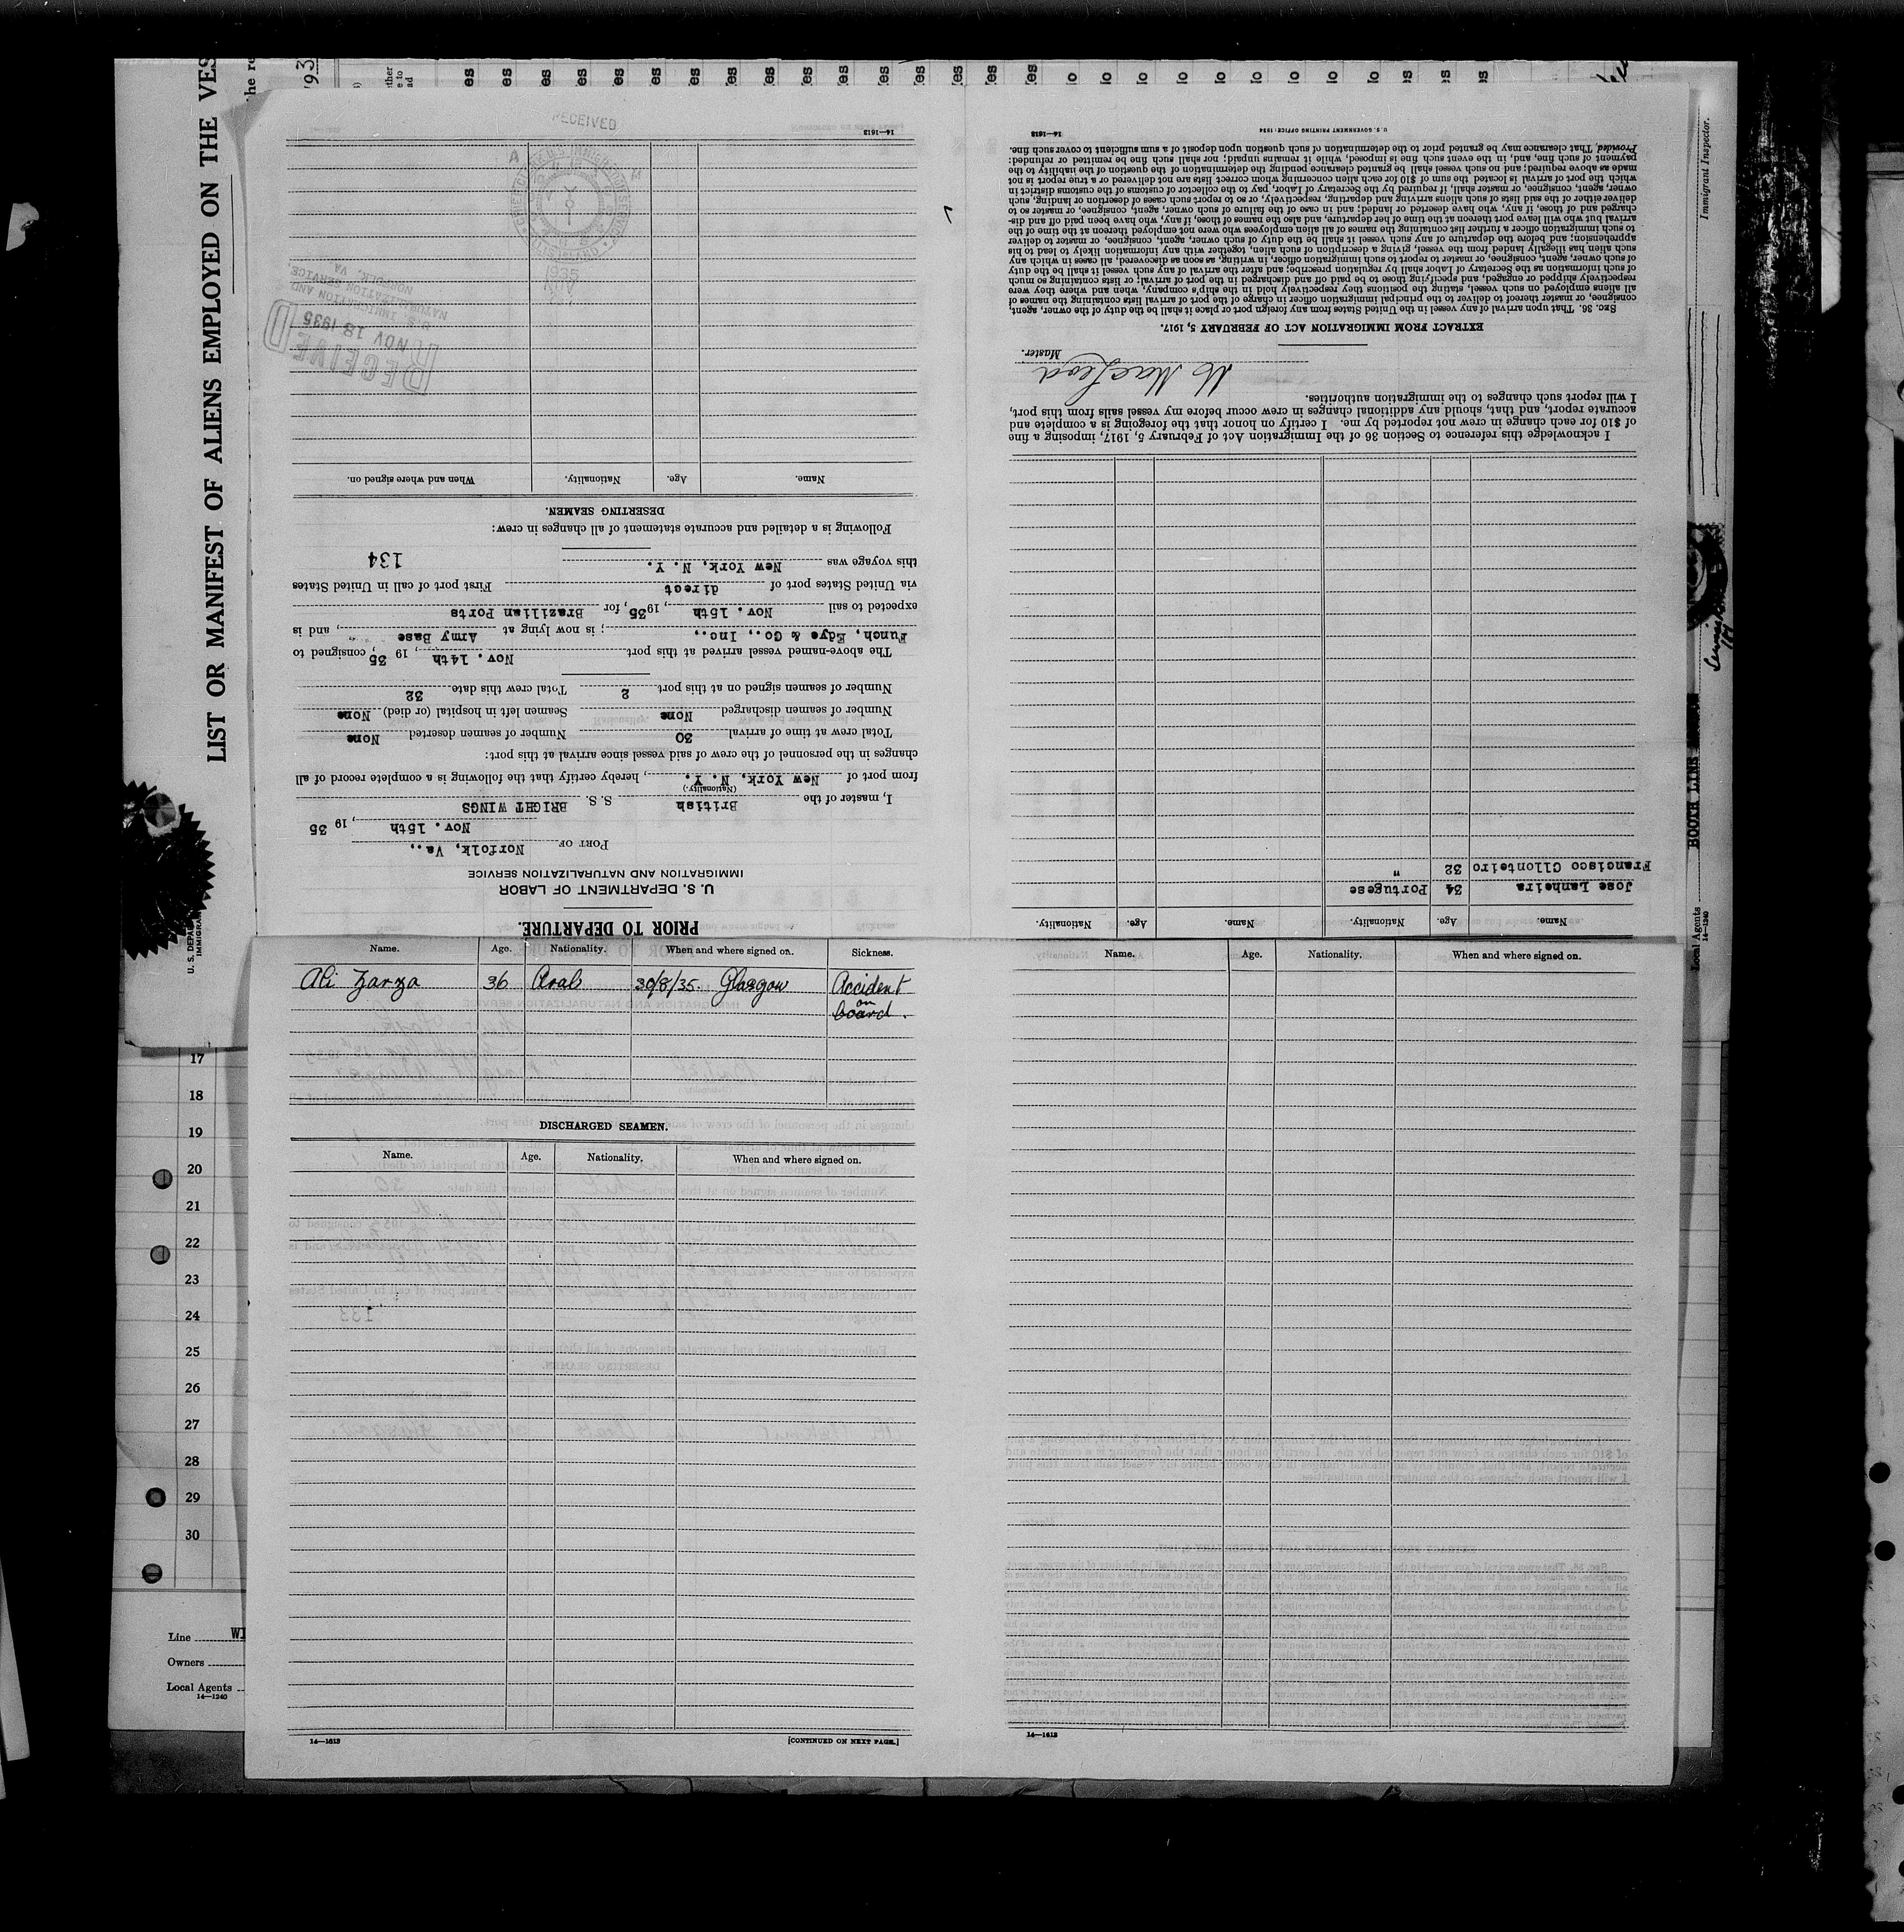 LIST OR MANIFEST OF ALIENS EMPLOYED ON THE VES
PRIOR TO DEPARTURE.
U. S. DEPARTMENT OF LABOR
IMMIGRATION AND NATURALIZATION SERVICE
PORT OF Norfolk, Va.,
Nov. 15th, 1935
I, master of the British S. S. BRIGHT WINGS
(Nationality.)
from port of New York, N. Y., hereby certify that the following is a complete record of all
changes in the personnel of the crew of said vessel since arrival at this port:
Total crew at time of arrival 30 Number of seamen deserted None
Number of seamen discharged None Seamen left in hospital (or died) None
Number of seamen signed on at this port 2 Total crew this date 32
The above-named vessel arrived at this port Nov. 14th, 1935, consigned to
Funch, Edye & Co., Inc.,; is now lying at Army Base, and is
expected to sail Nov. 15th, 1935, for Brazilian Ports
via United States port of direct First port of call in United States
this voyage was New York, N. Y. 134
Following is a detailed and accurate statement of all changes in crew:
DESERTING SEAMEN.
Name. Age. Nationality. When and where signed on.
RECEIVED
NOV 18 1935
U.S. IMMIGRATION AND
NATURALIZATION SERVICE,
NORFOLK, VA.
RECEIVED
1935
NOV
14—1613
Name. Age. Nationality. Name. Age. Nationality.
Jose Lanheira 34 Portugese
Francisco Cilonteiro 32 "
I acknowledge this reference to Section 36 of the Immigration Act of February 5, 1917, imposing a fine
of $10 for each change in crew not reported by me. I certify on honor that the foregoing is a complete and
accurate report, and that, should any additional changes in crew occur before my vessel sails from this port,
I will report such changes to the immigration authorities.
MacLeod
Master.
EXTRACT FROM IMMIGRATION ACT OF FEBRUARY 5, 1917.
SEC. 36. That upon arrival of any vessel in the United States from any foreign port or place it shall be the duty of the owner, agent,
consignee, or master thereof to deliver to the principal immigration officer in charge of the port of arrival lists containing the names of
all aliens employed on such vessel, stating the positions they respectively hold in the ship's company, when and where they were
respectively shipped or engaged, and specifying those to be paid off and discharged in the port of arrival; or lists containing so much
of such information as the Secretary of Labor shall by regulation prescribe; and after the arrival of any such vessel it shall be the duty
of such owner, agent, consignee, or master to report to such immigration officer, in writing, as soon as discovered, all cases in which any
such alien has illegally landed from the vessel, giving a description of such alien, together with any information likely to lead to his
apprehension; and before the departure of any such vessel it shall be the duty of such owner, agent, consignee, or master to deliver
to such immigration officer a further list containing the names of all alien employees who were not employed thereon at the time of the
arrival but who will leave port thereon at the time of her departure, and also the names of those, if any, who have been paid off and dis-
charged and of those, if any, who have deserted or landed; and in case of the failure of such owner, agent, consignee, or master so to
deliver either of the said lists of such aliens arriving and departing, respectively, or so to report such cases of desertion or landing, such
owner, agent, consignee, or master shall, if required by the Secretary of Labor, pay to the collector of customs of the customs district in
which the port of arrival is located the sum of $10 for each alien concerning whom correct lists are not delivered or a true report is not
made as above required; and no such vessel shall be granted clearance pending the determination of the question of the liability to the
payment of such fine, and, in the event such fine is imposed, while it remains unpaid; nor shall such fine be remitted or refunded:
Provided, That clearance may be granted prior to the determination of such question upon deposit of a sum sufficient to cover such fine.
U. S. GOVERNMENT PRINTING OFFICE: 1934
14—1613
Immigrant Inspector.
Local Agents
14—1240
Name. Age. Nationality. When and where signed on. Sickness.
Ali Zarza 36 Arab 30/8/35. Glasgow Accident
on
board.
DISCHARGED SEAMEN.
Name. Age. Nationality. When and where signed on.
14—1613
[CONTINUED ON NEXT PAGE.]
Name. Age. Nationality. When and where signed on.
14—1613
17
18
19
20
21
22
23
24
25
26
27
28
29
30
Line
Owners
Local Agents
14—1240